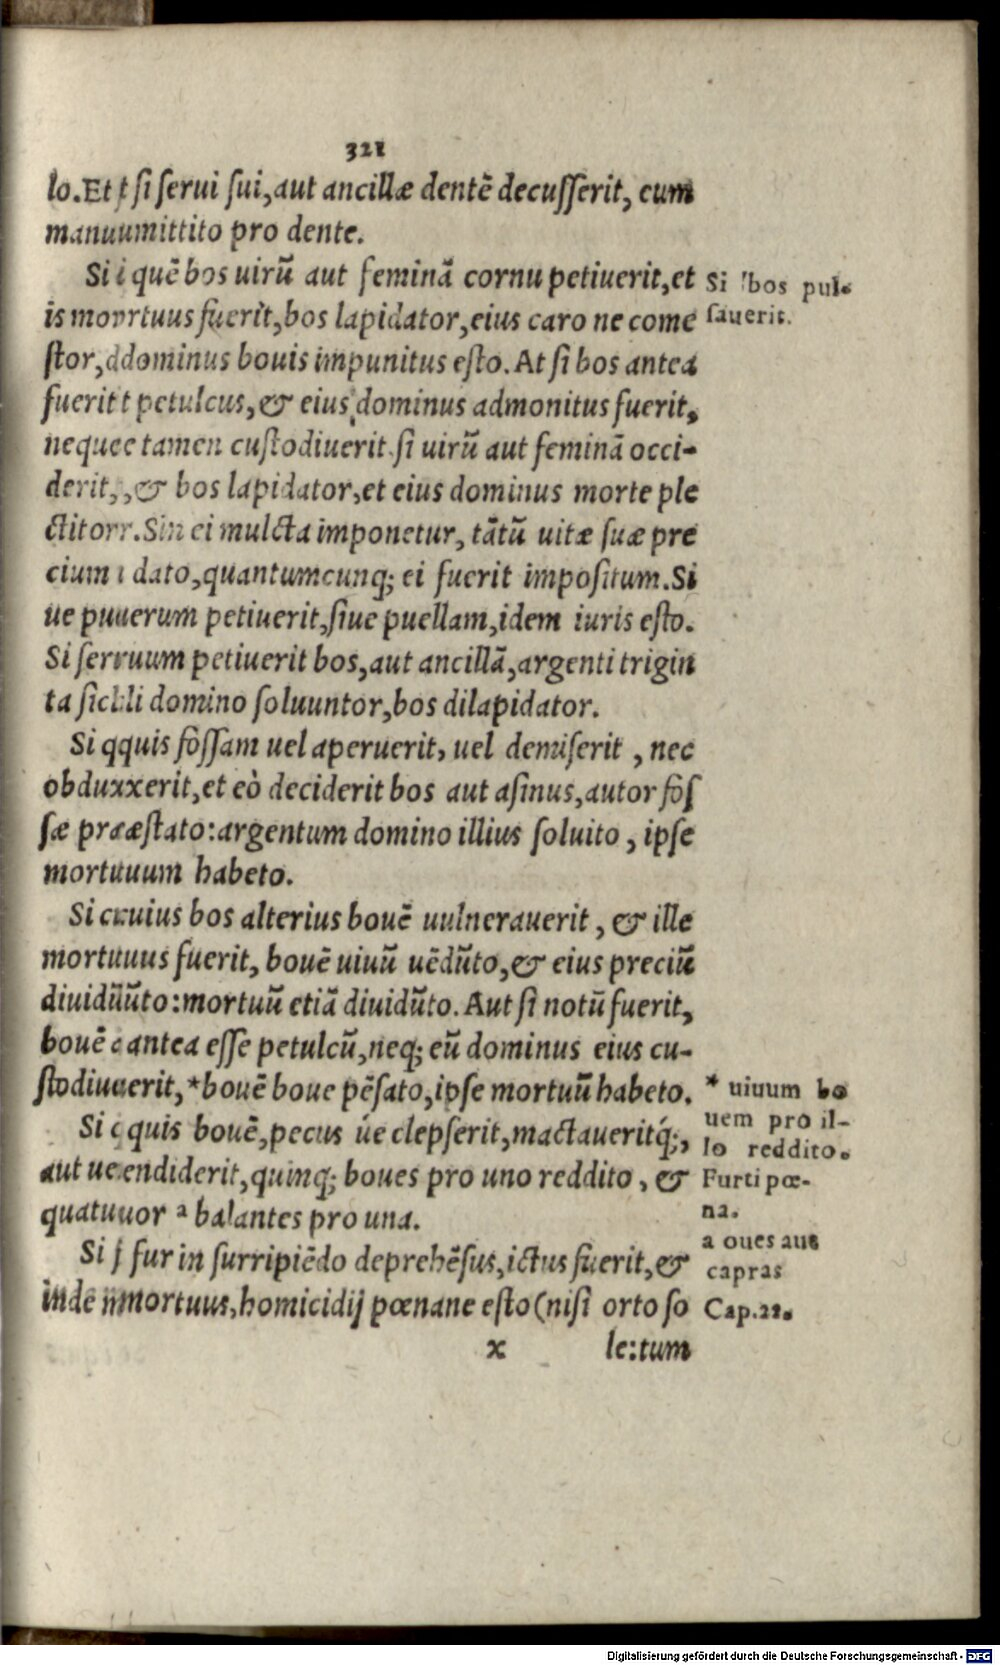 321
lo. Et t si serui sui, aut ancillæ dentē decusserit, eum
manuumittito pro dente.
Si i quē bos uirū aut feminā cornu petiuerit, et
is movrtuus fuerit, bos lapidator, eius caro ne come
stor, ddominus bouis impunitus esto. At si bos antea
fueritt petulcus, & eius dominus admonitus fuerit,
nequee tamen custodiuerit si uirū aut feminā occi-
derit,, & bos lapidator, et eius dominus morte ple
ctitorr. Sin ei mulcta imponetur, tātū uitæ suæ pre
cium ı dato, quantumcunq; ei fuerit impositum. Si
ue puuerum petiuerit, siue puellam, idem iuris esto.
Si serruum petiuerit bos, aut ancillā, argenti trigin
ta sicli domino soluuntor, bos dilapidator.
Si qquis fossam uel aperuerit, uel demiserit, nec
obduxxerit, et eò deciderit bos aut asinus, autor fos
sæ prææstato: argentum domino illius soluito, ipse
mortuuum habeto.
Si cuuius bos alterius bouē uulnerauerit, & ille
mortuuus fuerit, bouē uiuū uēdūto, & eius preciū
diuidūūto: mortuū etiā diuidūto. Aut si notū fuerit,
bouē antea esse petulcū, neq; eū dominus eius cu-
stodiuuerit, * bouē boue pēsato, ipse mortuū habeto.
Si quis bouē, pecus úe clepserit, mactaueritq́;,
aut ueendiderit, quinq; boues pro uno reddito, &
quatuuor a balantes pro una.
Si fur in surripiēdo deprehēsus, ictus fuerit, &
inde mmortuus, homicidij pœnane esto (nisi orto so
x le: tum
Si bos pul-
sauerit.
* uiuum bo
uem pro il-
lo reddito.
Furti pœ-
na.
a oues aut
capras
Cap. 22.
Digitalisierung gefördert durch die Deutsche Forschungsgemeinschaft - DFG